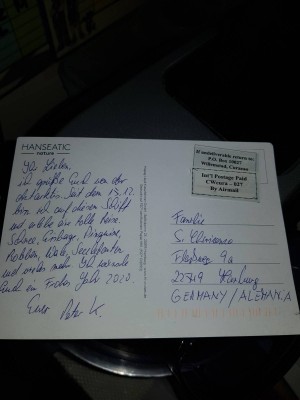 HANSEATIC
nature
If undeliverable return to:
P.O. Box 10027
Willemstad, Curacao
Int'l Postage Paid
CWcora - 027
By Airmail
Ihr Lieben.
ich grüße Euch von der
Antarktis. Seit dem 13.12.
bin ich auf diesem Schiff
und erlebe eine tolle Reise.
Schnee, Eisberge, Pinguine,
Robben, Wale, Seeelefanten
und vieles mehr. Ich wünsche
Euch ein Frohes Jahr 2020.
Euer Peter K.
Familie
S.
9a
22549 Hamburg
GERMANY / ALEMANIA